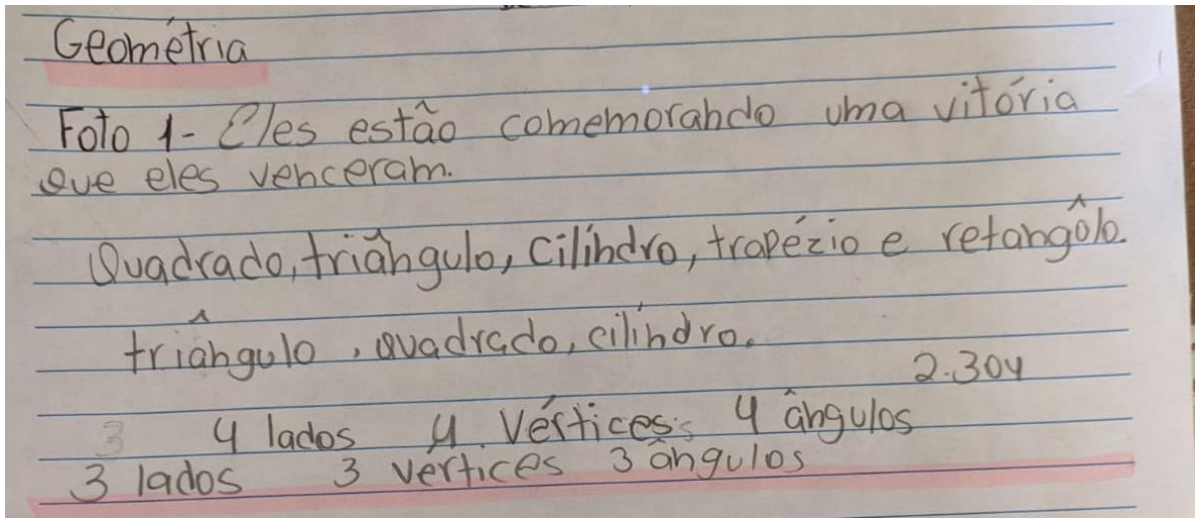 Geométria
Foto 1- Eles estão comemorando uma vitória
que eles venceram.
Quadrado, triângulo, cilíndro, trapézio e retangôlo.
triângulo, quadrado, cilíndro.
2.304
3 4 lados 4 vértices 4 ângulos
3 lados 3 vértices 3 ângulos